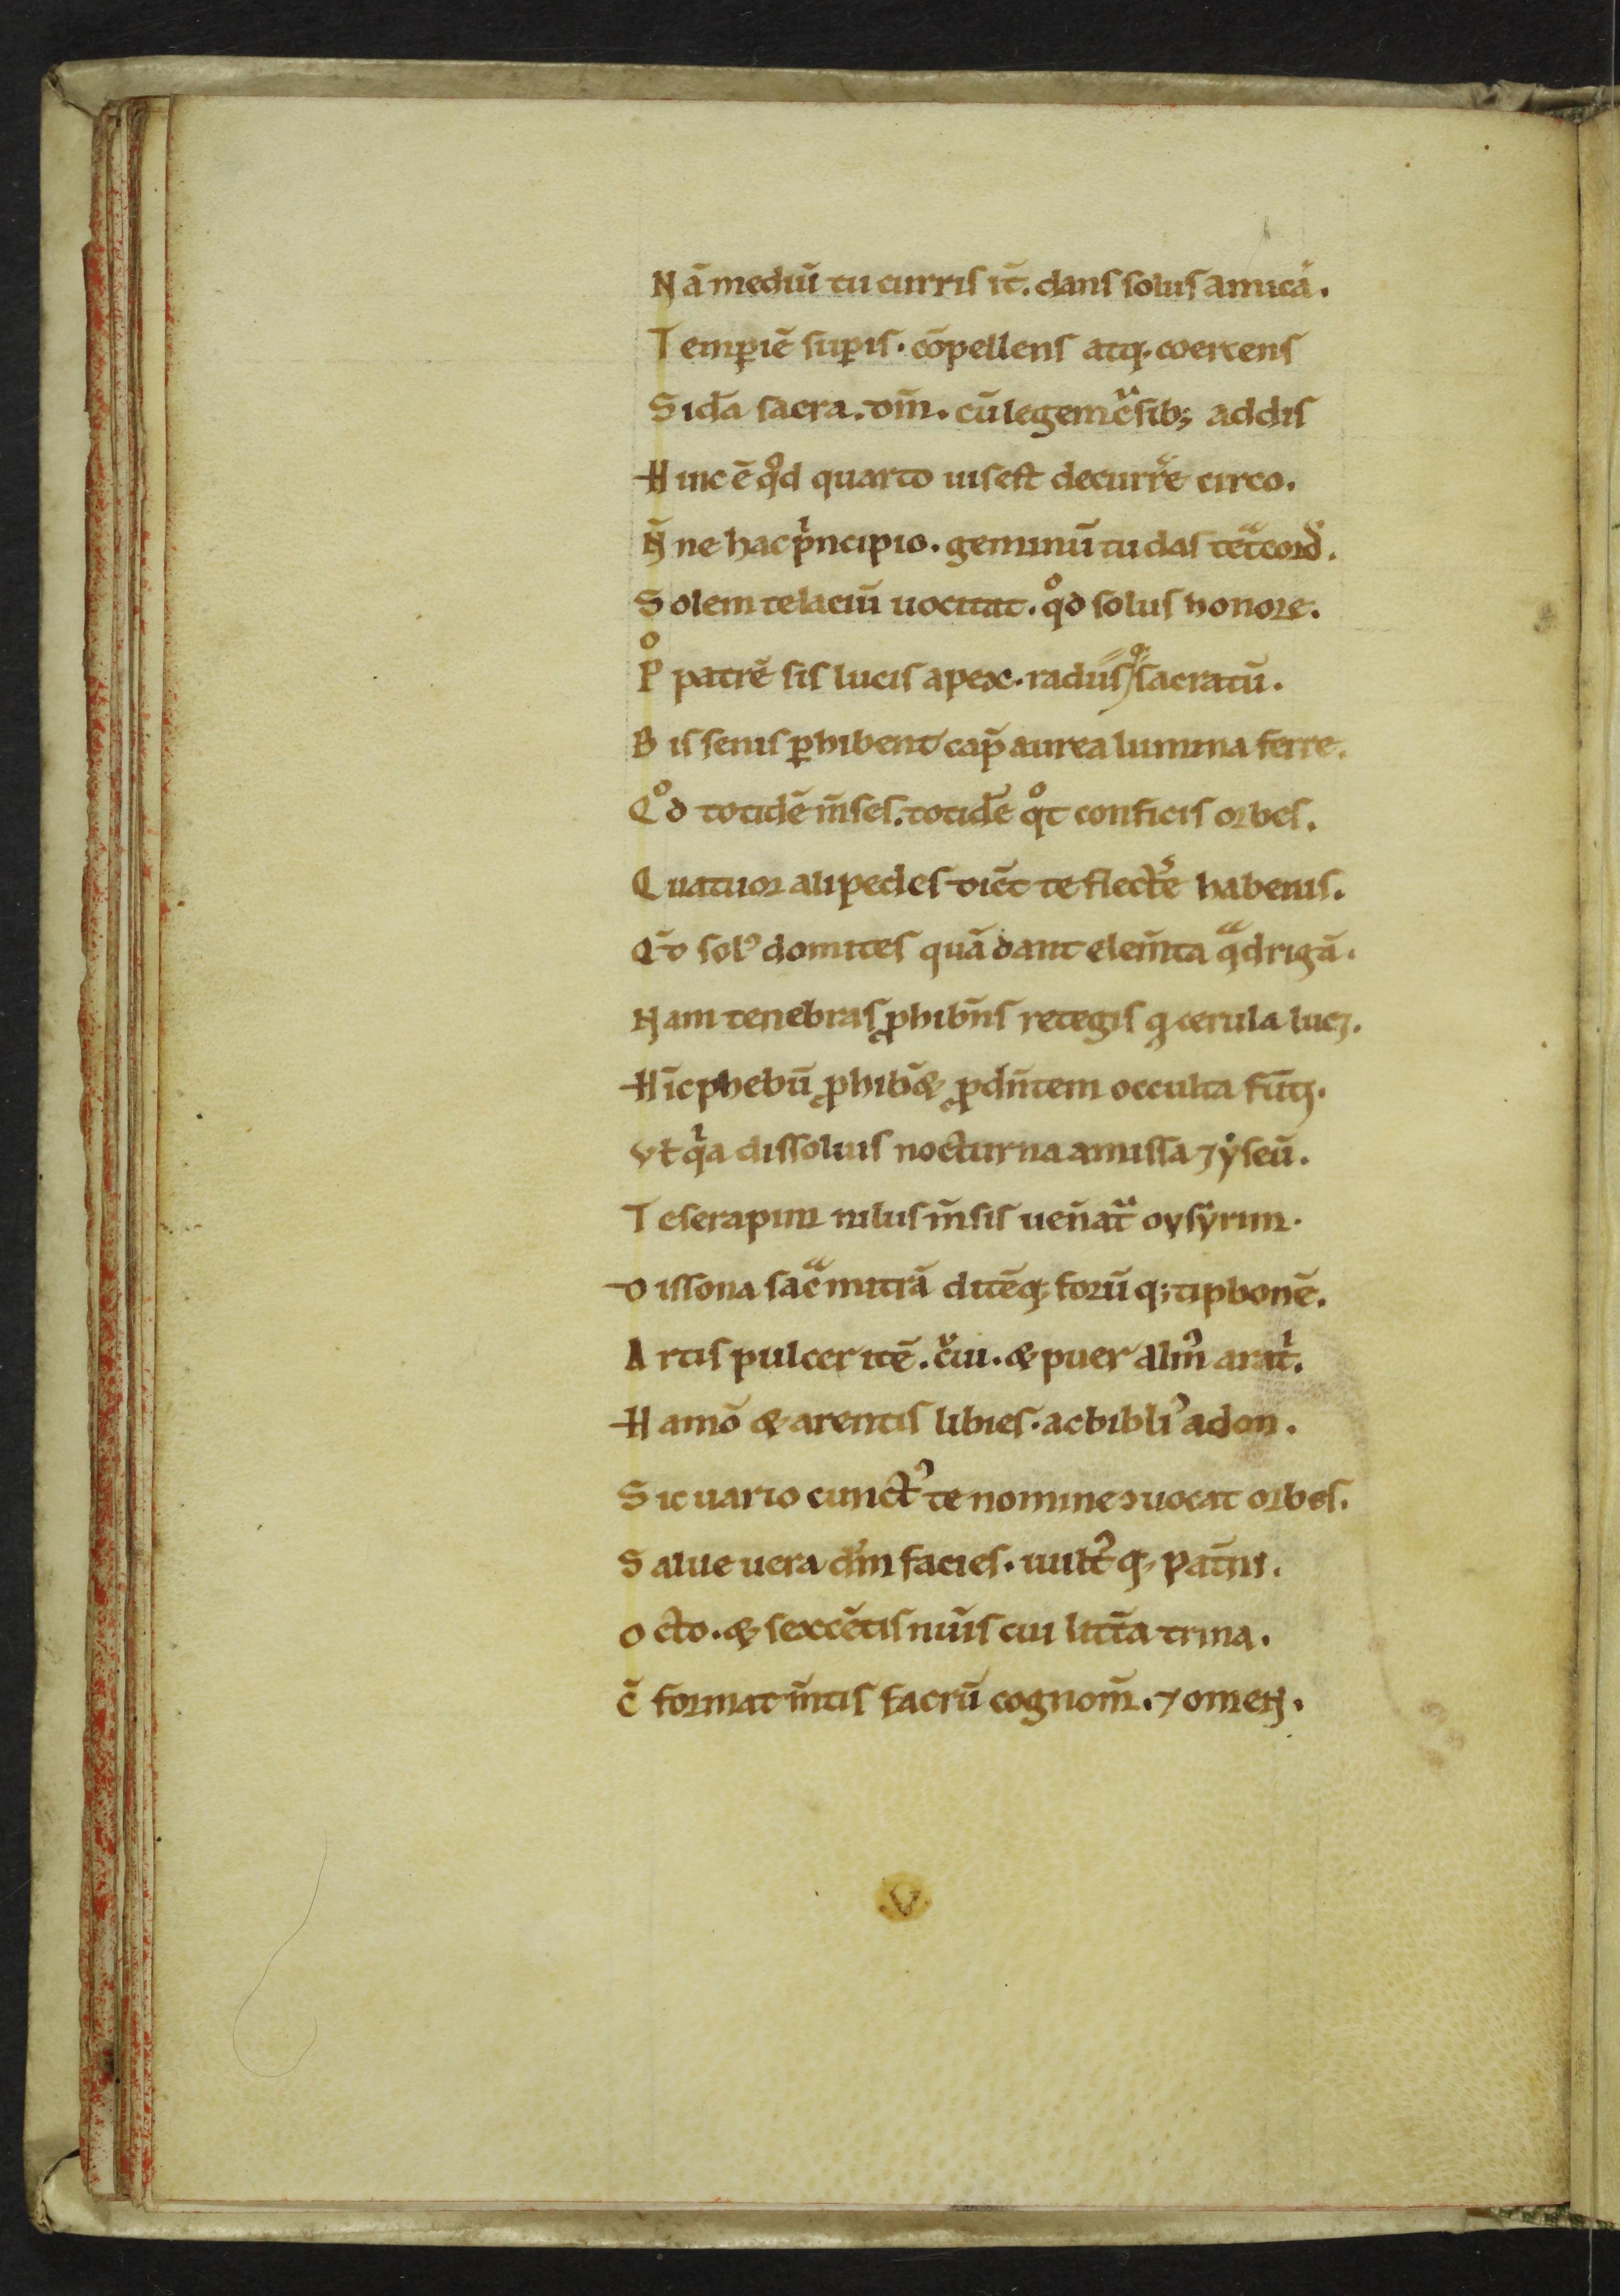 Nā mediū tu curris it̄. dans solus amicā.
Temp̄iē sup̄is. cōpellens atq; coercens
Sid̄a sacra. om̄. cū legem cͣsib; addis
Hinc ē qͦd quarto ius est decurr̄e circo.
N̄ ne hac pͥncipio. geminū tu das tetͣcord̄.
Solem te laciū uocitat. qͦd solus honore.
Pͦ patrē sis lucis apex. radiisqͦ; sacratū.
Bis senis p̄hibent cap̄ aurea lumina ferre.
Qͦd totidē m̄ses. totidē qͦt conficis orbes.
Quatuor alipedes dic̄t te flect̄e habenis.
Q̄d solꝰ domites quā dant elem̄ta qͣdrigā.
Nam tenebras ꝓhibn̄s retegis q cerula lucꝫ.
Hīc phebū ꝓhib̄& ꝓdn̄tem occulta futꝫ.
Vt̄ qͥa dissoluis nocturna amissa ⁊ yseū.
Te serapim nilus m̄sis uen̄atͣ oysyrim.
Dissona sacͣ mitrā ditēq; forū q; tiphonē.
Artis pulcer itē. cͮui. & puer almꝰ aratͥ.
Hamō & arentis libies. ac bibliꝰ adon.
Sic uario cunctꝰ te nomine ɔuocat orbes.
Salue uera dm̄ facies. uultꝰq; pat̄nis.
Octo. & sexcētis num̄is cui litt̄a trina.
C̄ format m̄tis sacrū cognom̄. ⁊ omen.
V